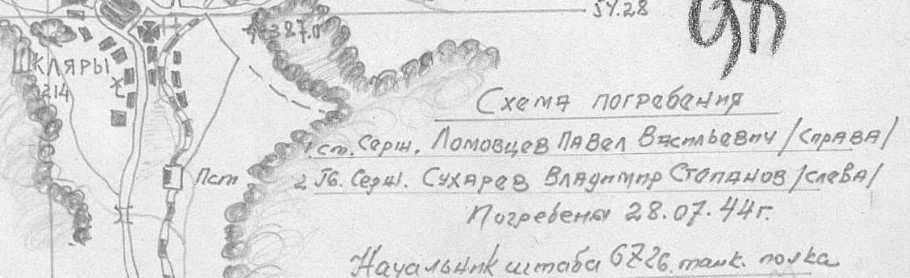 54.28
387.0
ШКЛЯРЫ
214
Схема погребания
1 ст. Серж. Ломовцев Павел Васильевич /справа/
Пст
2 Гв. Серж. Сухарев Владимир Степанов /слева/
Погребены 28.07.44г.
Начальник штаба танк. полка